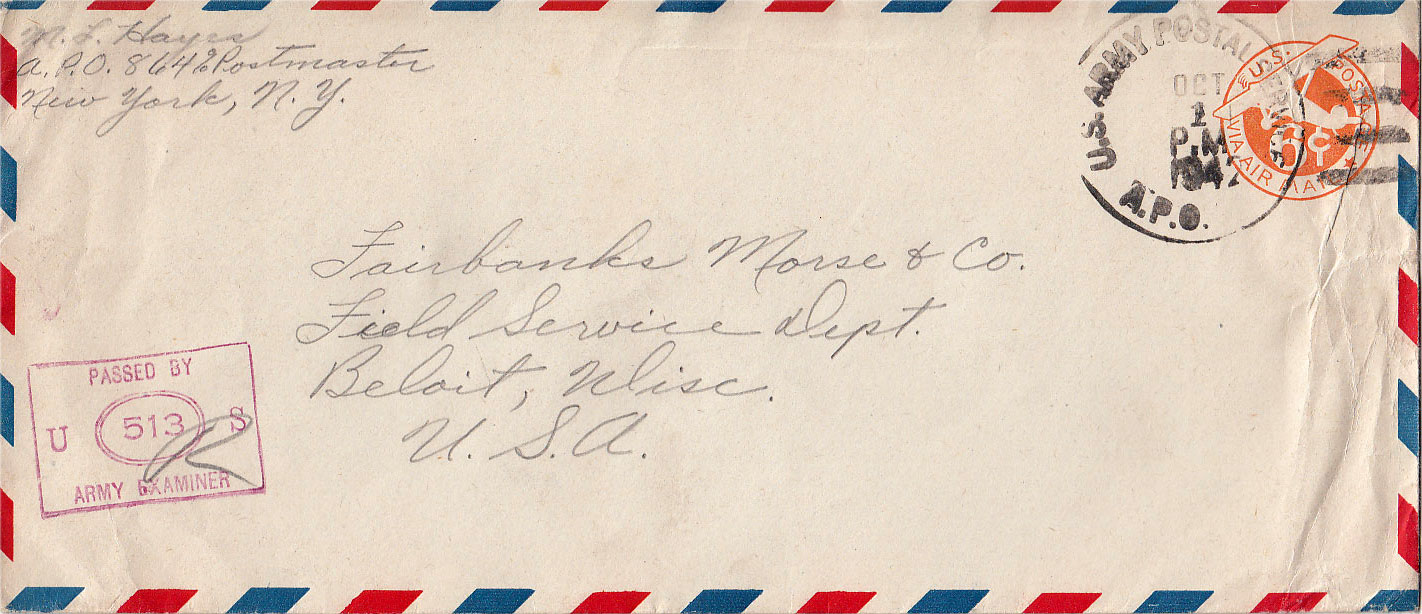 M. L. Hayes
A.P.O. 864 % Postmaster
New York, N.Y.
U.S. ARMY POSTAL SERVICE
OCT
1
P.M
1942
A.P.O.
U.S. POSTAGE
6¢
VIA AIR MAIL
Fairbanks Morse & Co.
Field Service Dept.
Beloit, Wisc.
U.S.A.
PASSED BY
U 513 S
ARMY EXAMINER